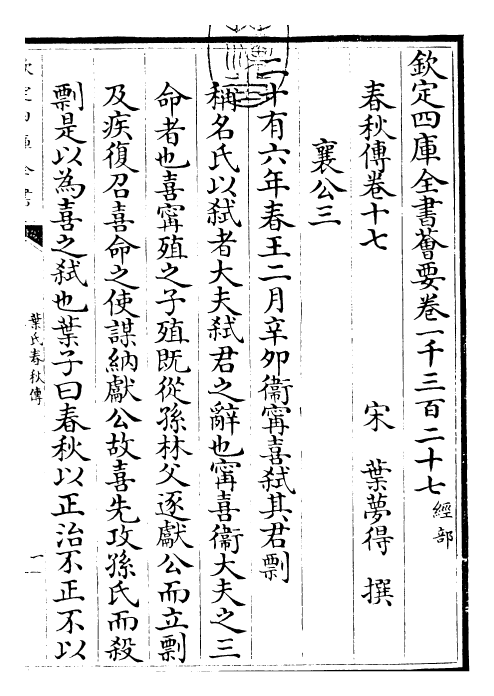 欽定四庫全書薈要卷一千三百二十七 經部
春秋傳卷十七 宋 葉夢得 撰
襄公三
二十有六年春王二月辛卯衞甯喜弑其君剽
稱名氏以弑者大夫弑君之辭也甯喜衞大夫之三
命者也喜甯殖之子殖既從孫林父逐獻公而立剽
及疾復召喜命之使謀納獻公故喜先攻孫氏而殺
剽是以為喜之弑也葉子曰春秋以正治不正不以
葉氏春秋傳
一